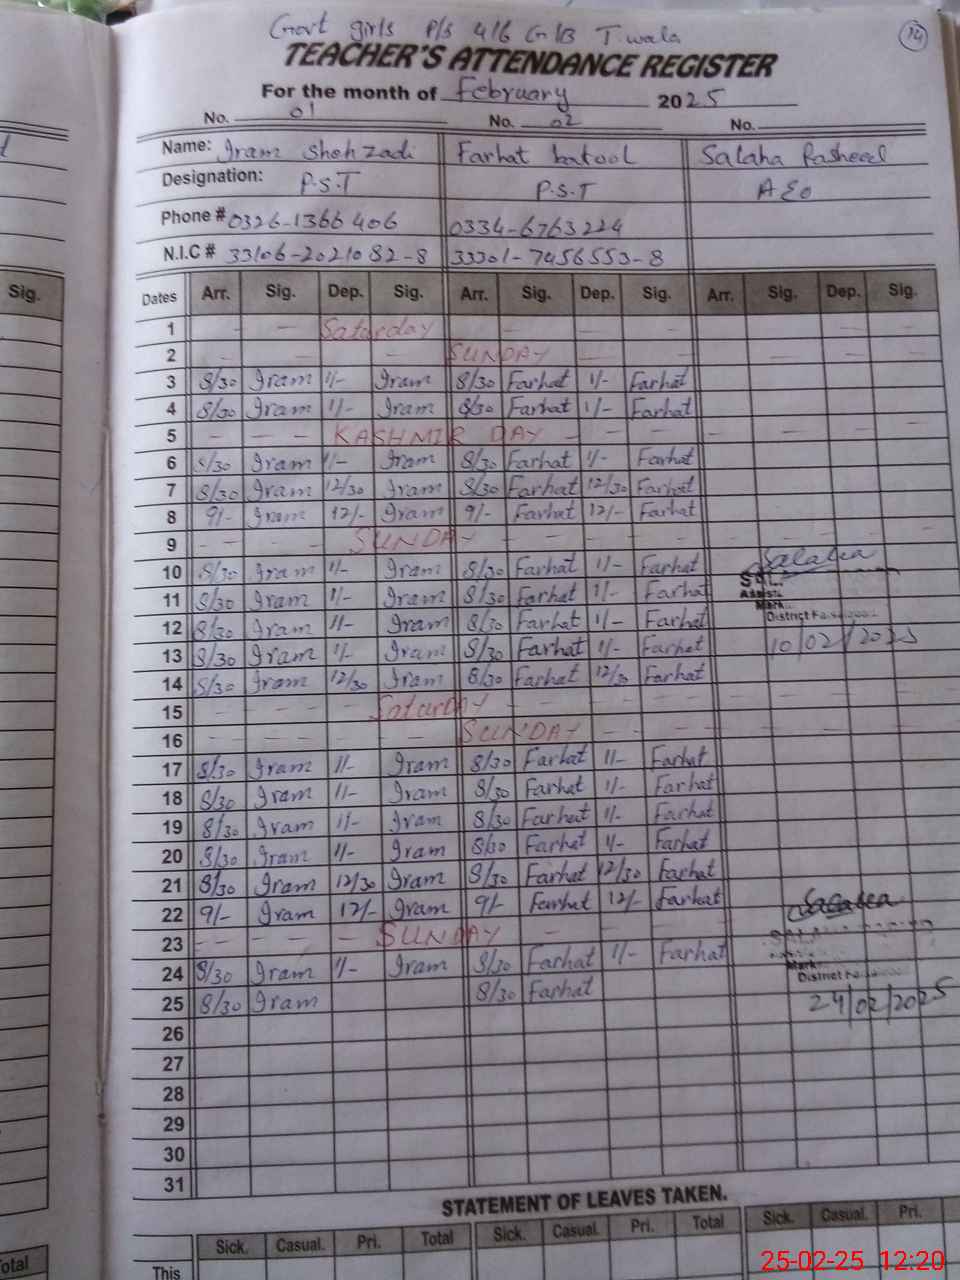 14
Govt girls P/S 416 G/B T.wala
TEACHER'S ATTENDANCE REGISTER
For the month of February 2025
No. 01 No. 02 No.
Name: Iram Shehzadi Farhat batool Salaha Rasheed
Designation: P.S.T P.S.T AEO
Phone # 0326-1366406 0334-6763224
N.I.C # 33106-2021082-8 33301-7456553-8
Sig. Dates Arr. Sig. Dep. Sig. Arr. Sig. Dep. Sig. Arr. Sig. Dep. Sig.
1 - - Saturday - - - - - -
2 - - - - SUNDAY - - - -
3 8/30 Iram 1/- Iram 8/30 Farhat 1/- Farhat
4 8/30 Iram 1/- Iram 8/30 Farhat 1/- Farhat
5 - - - KASHMIR DAY - - - - - -
6 8/30 Iram 1/- Iram 8/30 Farhat 1/- Farhat
7 8/30 Iram 12/30 Iram 8/30 Farhat 12/30 Farhat
8 9/- Iram 12/- Iram 9/- Farhat 12/- Farhat
9 - - - SUNDAY - - - - - - -
10 8/30 Iram 1/- Iram 8/30 Farhat 1/- Farhat Salaha
11 8/30 Iram 1/- Iram 8/30 Farhat 1/- Farhat
12 8/30 Iram 1/- Iram 8/30 Farhat 1/- Farhat District
13 8/30 Iram 1/- Iram 8/30 Farhat 1/- Farhat 10/02/2025
14 8/30 Iram 12/30 Iram 8/30 Farhat 12/30 Farhat
15 - - - Saturday - - - - - - -
16 - - - - SUNDAY - - - - -
17 8/30 Iram 1/- Iram 8/30 Farhat 1/- Farhat
18 8/30 Iram 1/- Iram 8/30 Farhat 1/- Farhat
19 8/30 Iram 1/- Iram 8/30 Farhat 1/- Farhat
20 8/30 Iram 1/- Iram 8/30 Farhat 1/- Farhat
21 8/30 Iram 12/30 Iram 8/30 Farhat 12/30 Farhat
22 9/- Iram 12/- Iram 9/- Farhat 12/- Farhat Salaha
23 - - - - SUNDAY - - - -
24 8/30 Iram 1/- Iram 8/30 Farhat 1/- Farhat District
25 8/30 Iram 8/30 Farhat 24/02/2025
26
27
28
29
30
31
STATEMENT OF LEAVES TAKEN.
Sick. Casual. Pri. Total Sick. Casual. Pri. Total Sick. Casual. Pri.
This
25-02-25 12:20